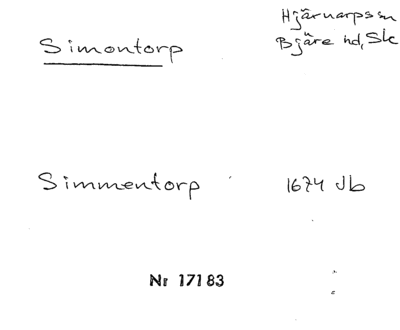 Simontorp
Hjärnarpssn
Bjäre hd, Sk
Simmentorp 1674 Jb
Nr 17183